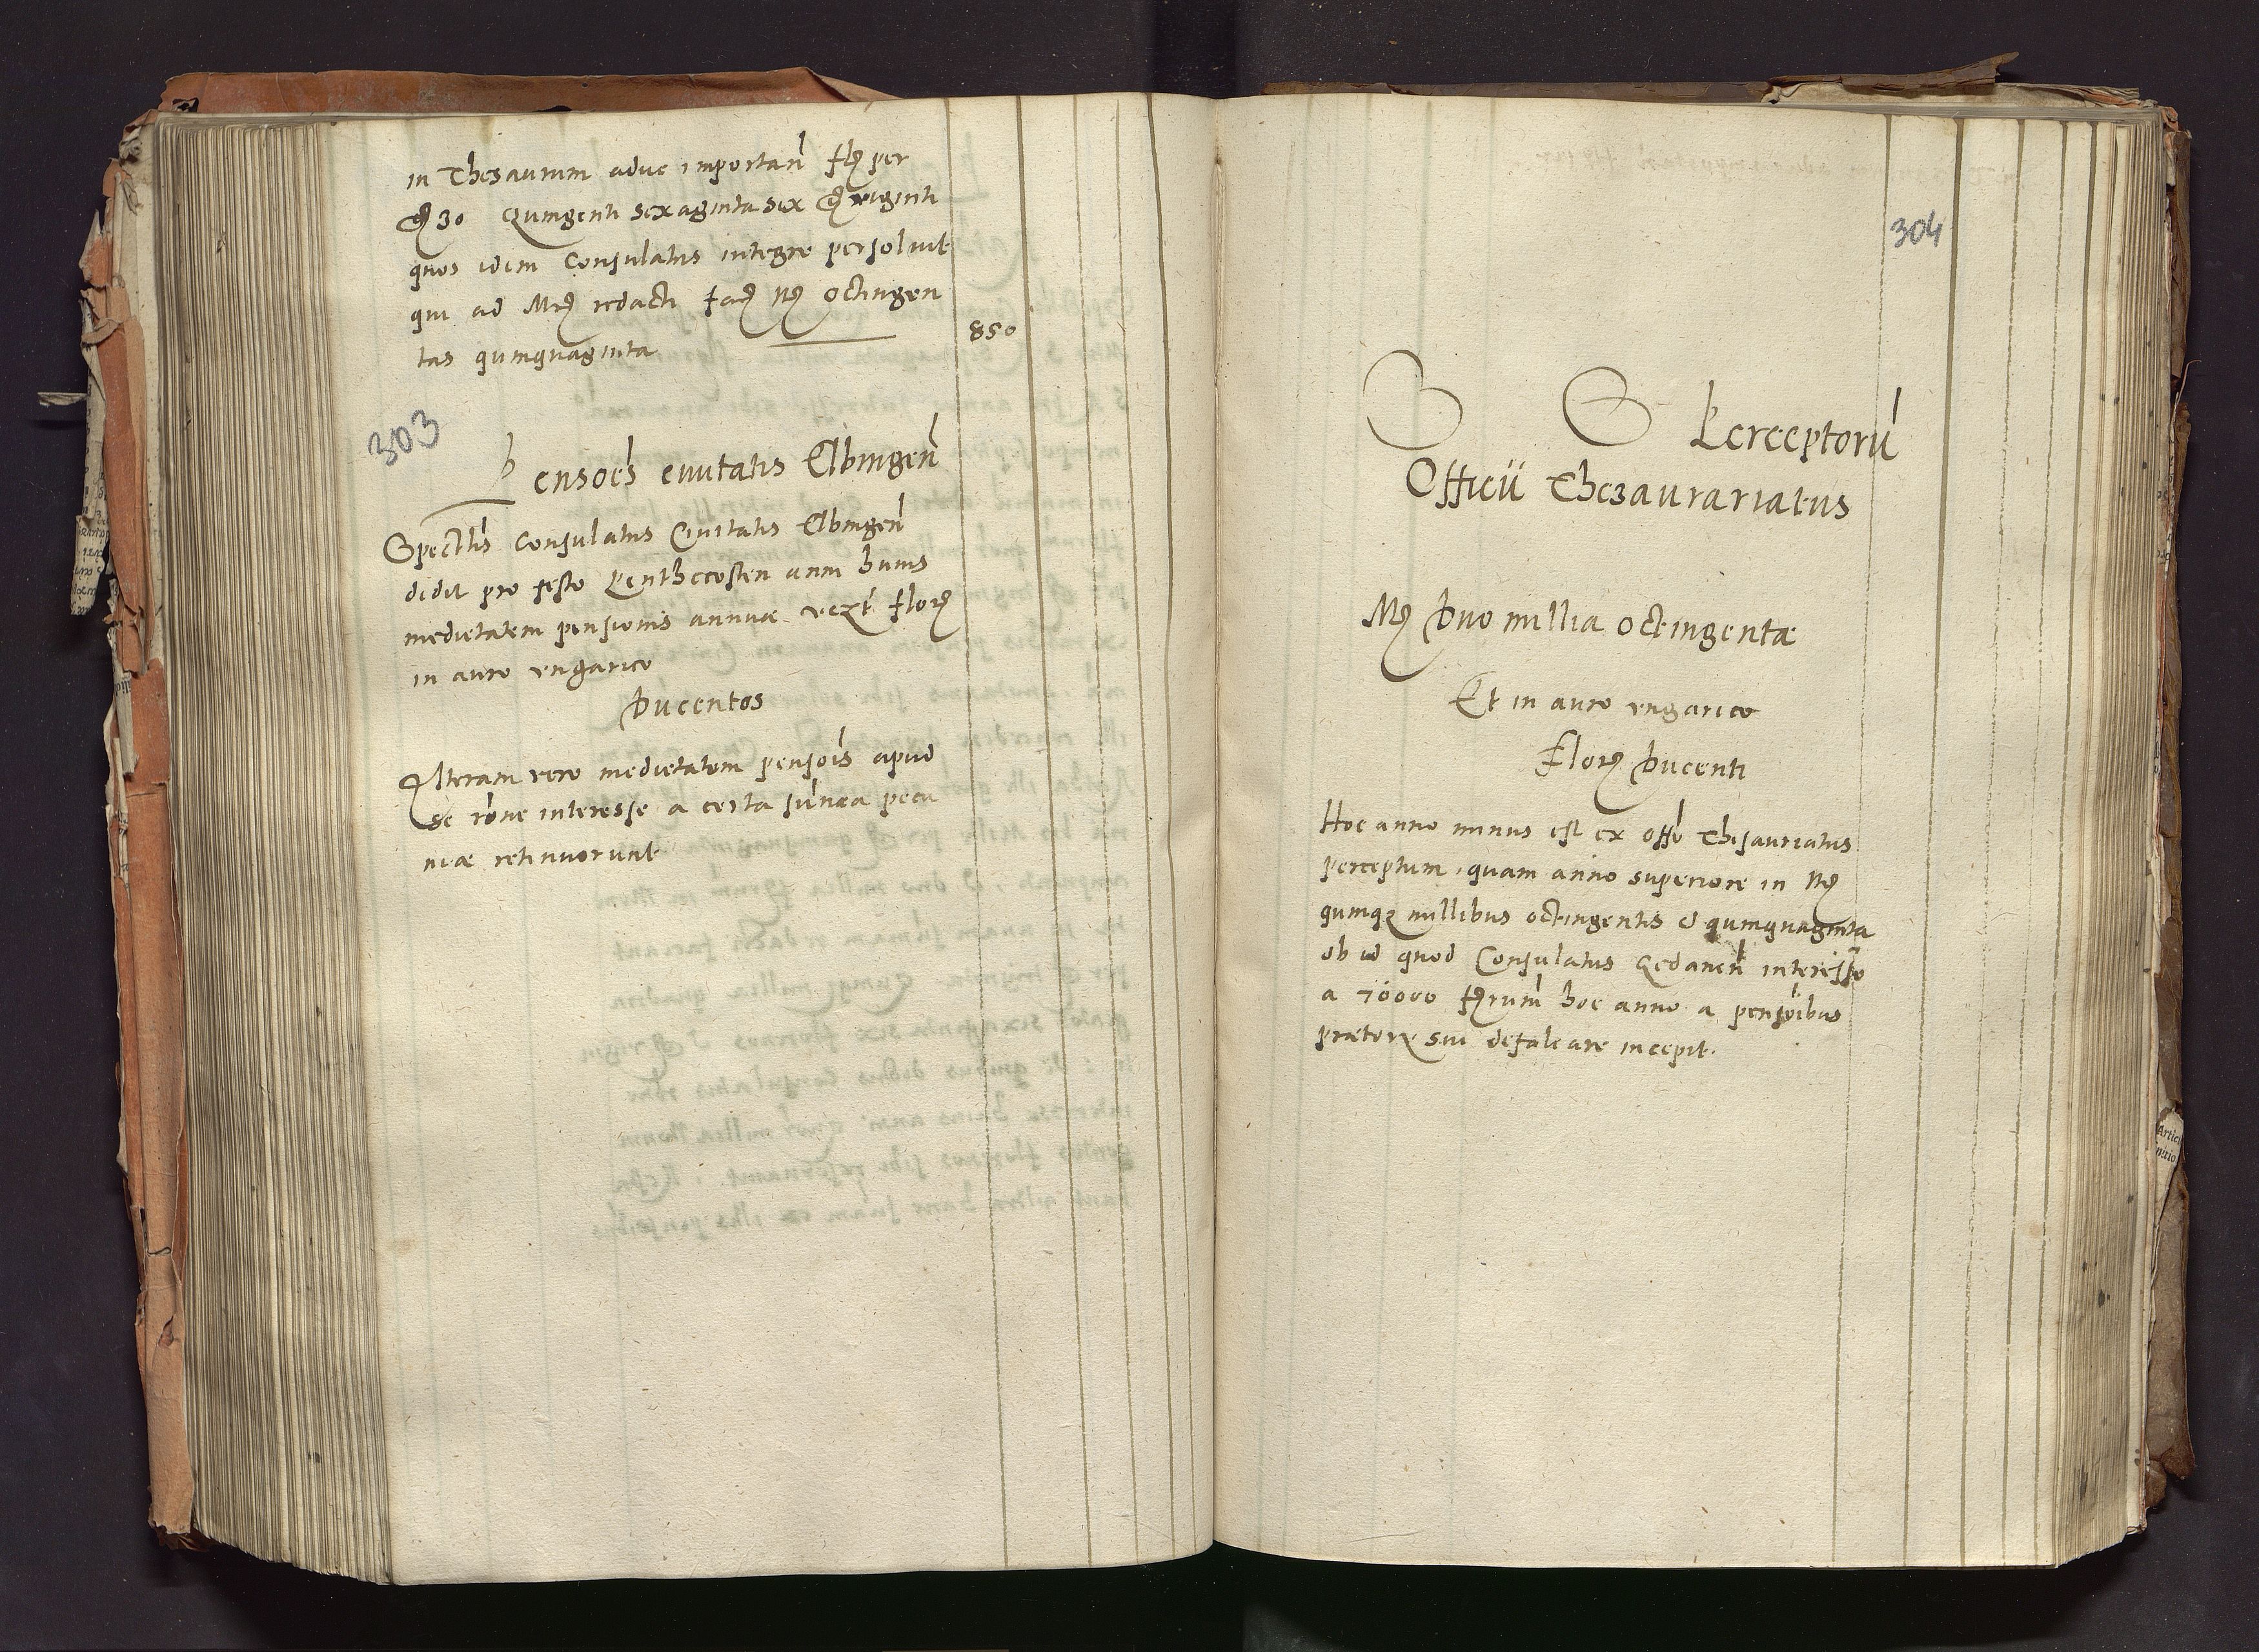 in Thesaurum aduc importan̄ fl per
gr 30 Quingenti sexaginta sex gr viginti
quos idem Consulatus integre persoluit
qui ad Mrc redacti fac Mrc Octingen
tas quinquaginta 850
303
Pensoēs ciuitatis Elbingen̄
Spectlis Consulatus Ciuitatis Elbingen̄
dedit pro festo Penthecosten anni huius
medietatem pensionis annuæ flor
in auro vngarico
Ducentos
Alteram vero medietatem pensois apud
se rōne interesse a certa sūmæa pecu
niæ retinuerunt
304
Perceptorū
Officii Thesaurariatus
Mrc Duo millia octingentæ
Et in auro vngarico
Flor Ducenti
Hoc anno minus est ex offo Thesauriatus
perceptum, quam anno superiore in Mrc
quinqz millibus octingentis & quinquaginta
ob id quod Consulatus Gedanen̄ interesse
a 70000 hoc anno a pensoibus
prætorz sui defalcare incepit.